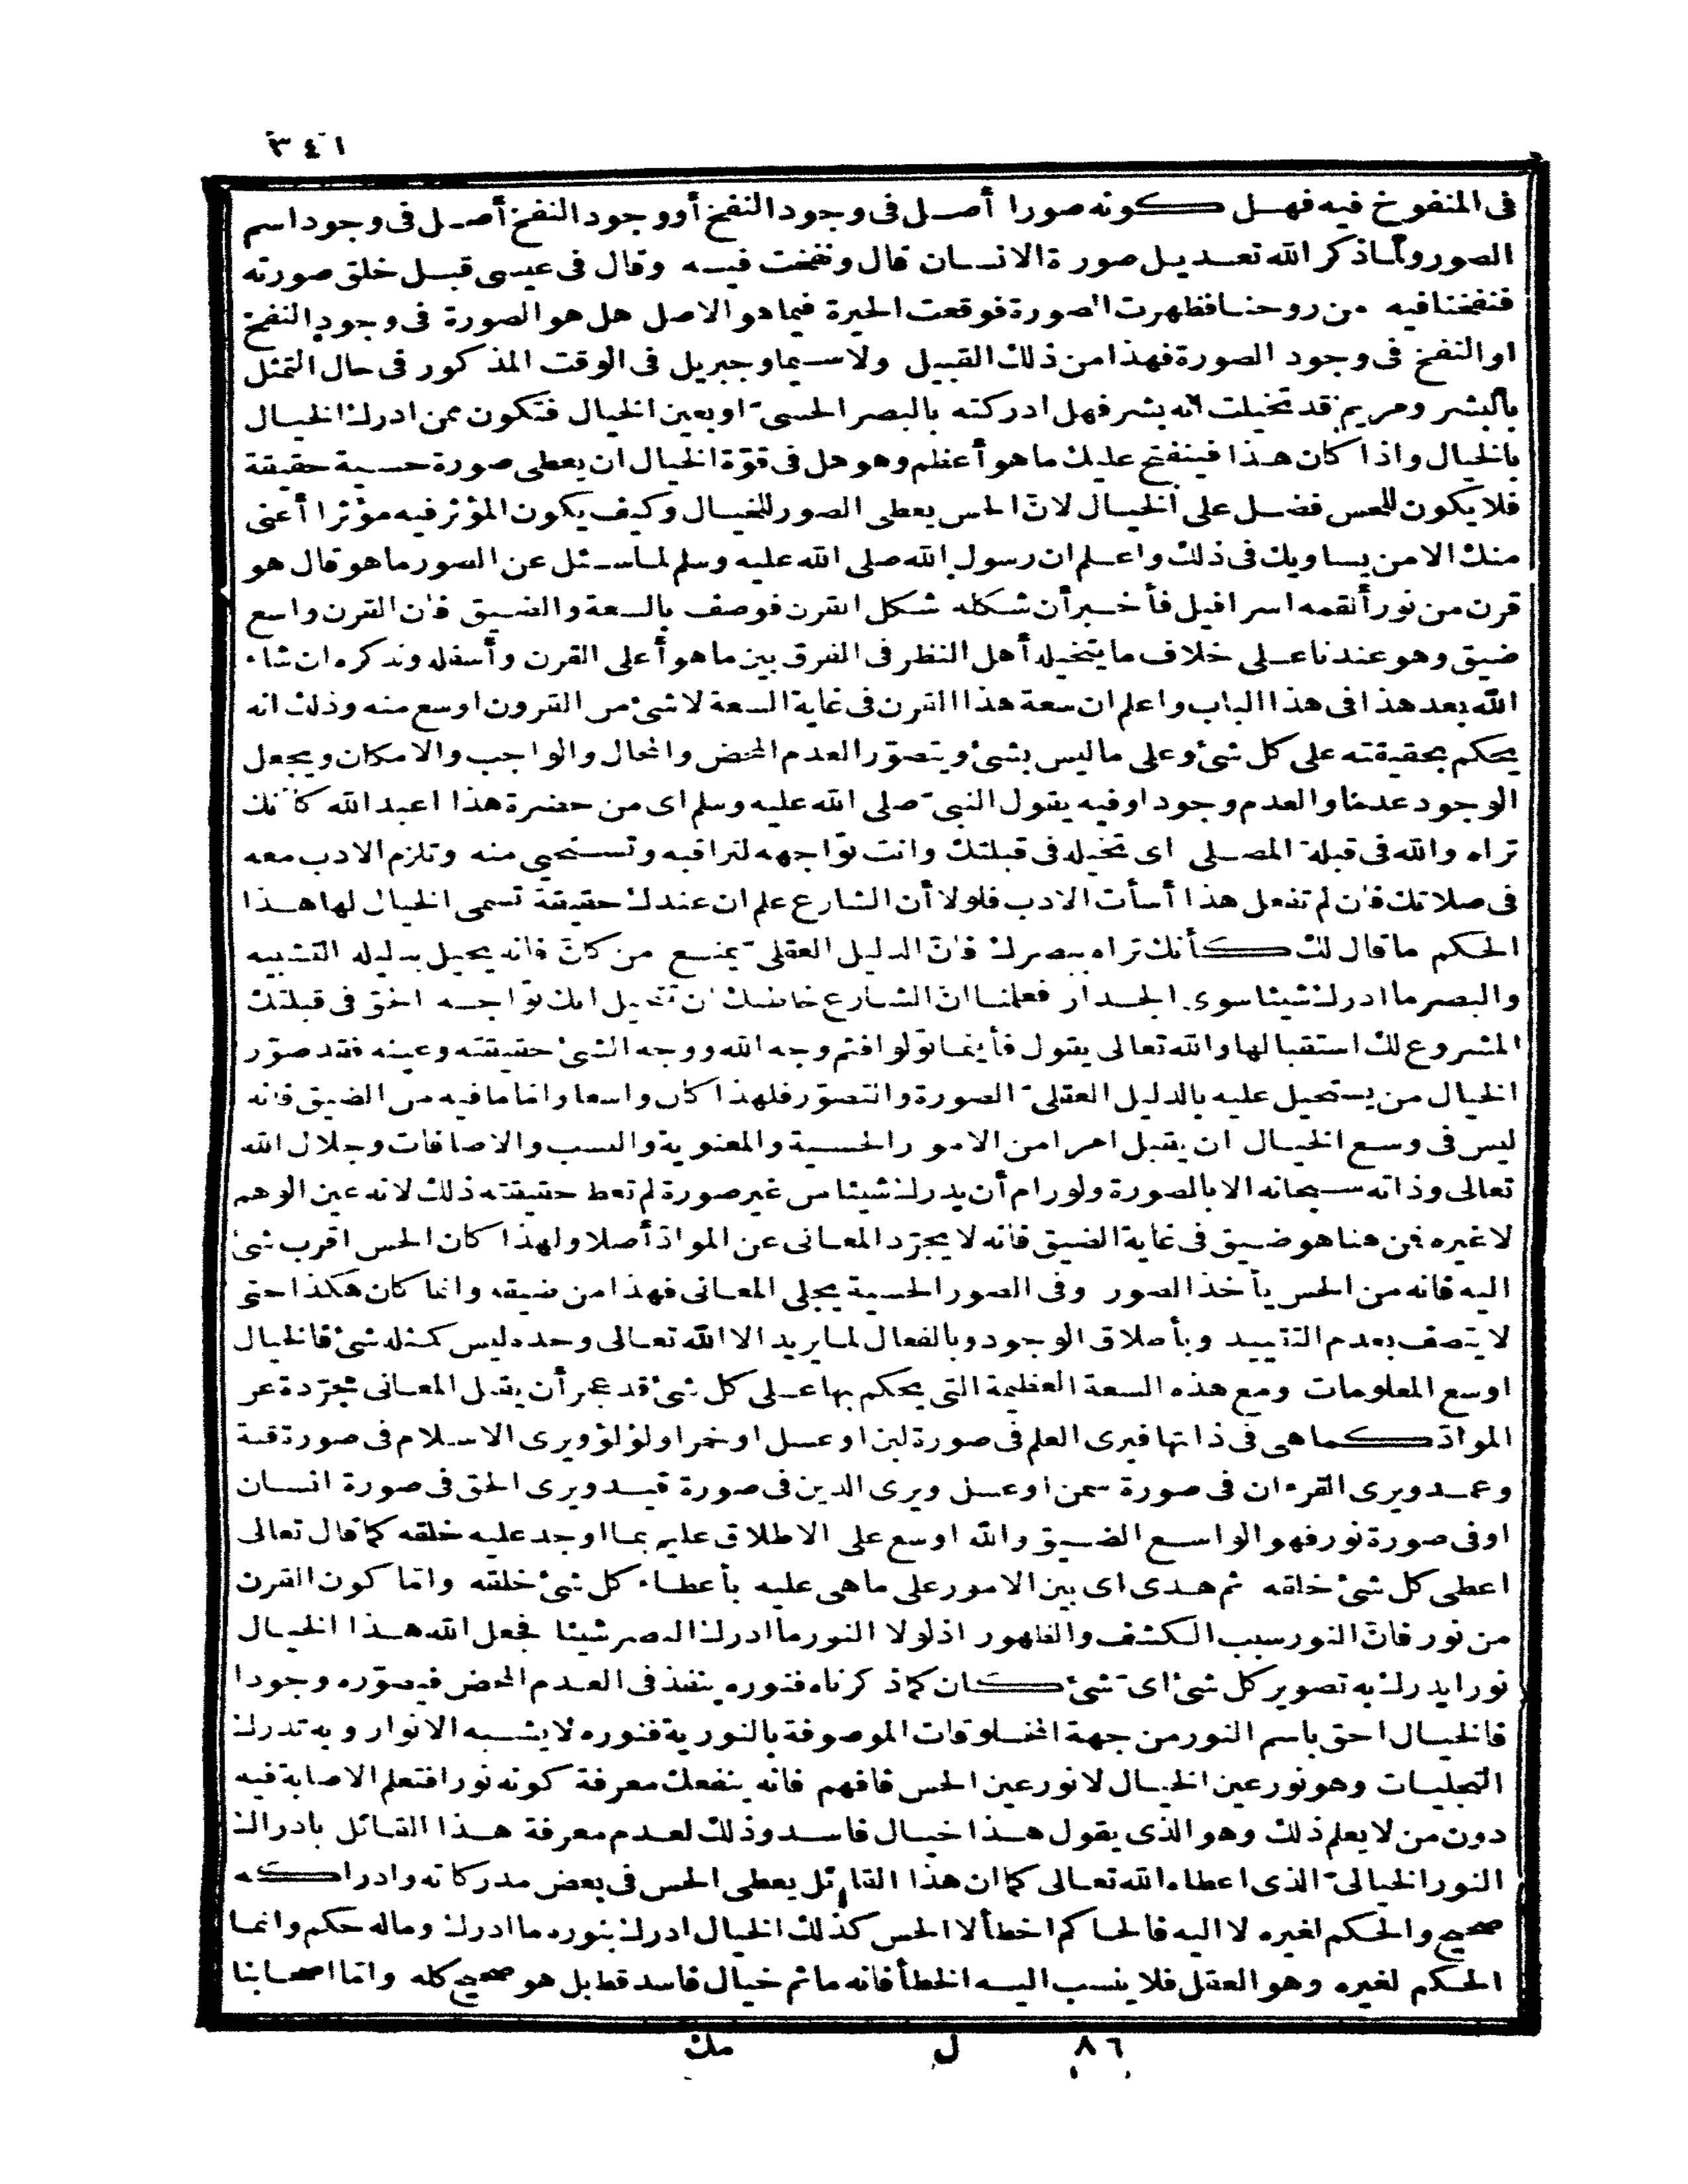 ٣٤١
فى المنفوخ فيه فهل كونه صورا أصل فى وجود النفخ أو وجود النفخ أصل فى وجود اسم
الصور ولما ذكر الله تعديل صورة الانسان قال ونفخت فيه وقال فى عيسى قبل خلق صورته
فنفخنا فيه من روحنا فظهرت الصورة فوقعت الحيرة فيما هو الاصل هل هو الصورة فى وجود النفخ
او النفخ فى وجود الصورة فهذا من ذلك القبيل ولا سيما وجبريل فى الوقت المذكور فى حال التمثل
بالبشر ومريم قد تخيلت انه بشر فهل ادركته بالبصر الحسىّ او بعين الخيال فتكون ممن ادرك الخيال
بالخيال واذا كان هذا فينفتح عليك ما هو أعظم وهو هل فى قوّة الخيال ان يعطى صورة حسية حقيقة
فلا يكون للحس فضل على الخيال لانّ الحس يعطى الصور للخيال وكيف يكون المؤثر فيه مؤثرا أعنى
منك الا من يساويك فى ذلك واعلم ان رسول الله صلى الله عليه وسلم لما سئل عن الصور ما هو قال هو
قرن من نور ألقمه اسرافيل فأخبر أن شكله شكل القرن فوصف بالسعة والضيق فان القرن واسع
ضيق وهو عندنا على خلاف ما يتخيله أهل النظر فى الفرق بين ما هو أعلى القرن وأسفله ونذكره ان شاء
الله بعد هذا فى هذا الباب واعلم ان سعة هذا القرن فى غاية السعة لا شئ من القرون اوسع منه وذلك انه
يحكم بحقيقته على كل شئ وعلى ما ليس بشئ ويتصوّر العدم المحض والمحال والواجب والامكان ويجعل
الوجود عدما والعدم وجودا وفيه يقول النبىّ صلى الله عليه وسلم اى من حضرة هذا اعبد الله كأنك
تراه والله فى قبلة المصلى اى تخيله فى قبلتك وانت تواجهه لتراقبه وتستحيى منه وتلزم الادب معه
فى صلاتك فان لم تفعل هذا أسأت الادب فلولا أن الشارع علم ان عندك حقيقة تسمى الخيال لها هذا
الحكم ما قال لك كأنك تراه ببصرك فانّ الدليل العقلىّ يمنع من كانّ فانه يحيل بدليله التشبيه
والبصر ما ادرك شيئا سوى الجدار فعلمنا انّ الشارع خاطبك ان تتخيل انك تواجه الحق فى قبلتك
المشروع لك استقبالها والله تعالى يقول فأينما تولوا فثم وجه الله ووجه الشئ حقيقته وعينه فقد صوّر
الخيال من يستحيل عليه بالدليل العقلىّ الصورة والتصوّر فلهذا كان واسعا واما ما فيه من الضيق فانه
ليس فى وسع الخيال ان يقبل امرا من الامور الحسية والمعنوية والنسب والاضافات وجلال الله
تعالى وذاته سبحانه الا بالصورة ولو رام أن يدرك شيئا من غير صورة لم تعط حقيقته ذلك لانه عين الوهم
لا غيره فمن هنا هو ضيق فى غاية الضيق فانه لا يجرّد المعانى عن الموادّ أصلا ولهذا كان الحس اقرب شئ
اليه فانه من الحس يأخذ الصور وفى الصور الحسية يجلى المعانى فهذا من ضيقه وانما كان هكذا حتى
لا يتصف بعدم التقييد وبأطلاق الوجود وبالفعال لما يريد الا الله تعالى وحده ليس كمثله شئ فالخيال
اوسع المعلومات ومع هذه السعة العظيمة التى يحكم بها على كل شئ قد عجز أن يقبل المعانى مجرّدة عن
الموادّ كما هى فى ذاتها فيرى العلم فى صورة لبن او عسل او خمر او لؤلؤ ويرى الاسلام فى صورة قبة
وعمد ويرى القرءان فى صورة سمن او عسل ويرى الدين فى صورة قيد ويرى الحق فى صورة انسان
او فى صورة نور فهو الواسع الضيق والله اوسع على الاطلاق عليم بما اوجد عليه خلقه كما قال تعالى
اعطى كل شئ خلقه ثم هدى اى بين الامور على ما هى عليه بأعطاء كل شئ خلقه وامّا كون القرن
من نور فانّ النور سبب الكشف والظهور اذ لولا النور ما ادرك البصر شيئا فجعل الله هذا الخيال
نورا يدرك به تصوير كل شئ اىّ شئ كان كما ذكرناه فنوره ينفذ فى العدم المحض فيصوّره وجودا
فالخيال احق باسم النور من جهة المخلوقات الموصوفة بالنورية فنوره لا يشبه الانوار وبه تدرك
التجليات وهو نور عين الخيال لا نور عين الحس فافهم فانه ينفعك معرفة كونه نورا فتعلم الاصابة فيه
دون من لا يعلم ذلك وهو الذى يقول هذا خيال فاسد وذلك لعدم معرفة هذا القائل بادراك
النور الخيالىّ الذى اعطاه الله تعالى كما ان هذا القائل يعطى الحس فى بعض مدركاته وادراكه
صحيح والحكم لغيره لا اليه فالحاكم اخطأ لا الحس كذلك الخيال ادرك بنوره ما ادرك وماله حكم وانما
الحكم لغيره وهو العقل فلا ينسب اليه الخطأ فانه ما ثم خيال فاسد قط بل هو صحيح كله وامّا اصحابنا
٨٦ ل مك